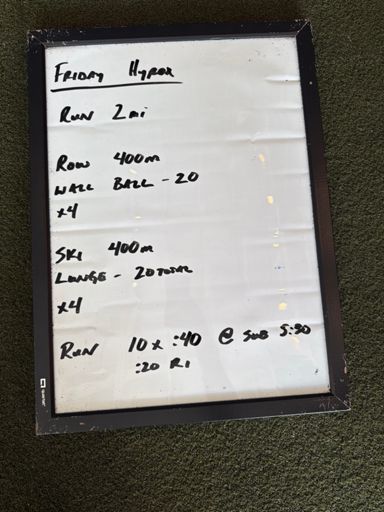 FRIDAY HYROX
RUN 2mi
ROW 400m
WALL BALL - 20
x4
SKI 400m
LUNGE - 20 TOTAL
x4
RUN 10 x :40 @ SUB 5:30
:20 RI